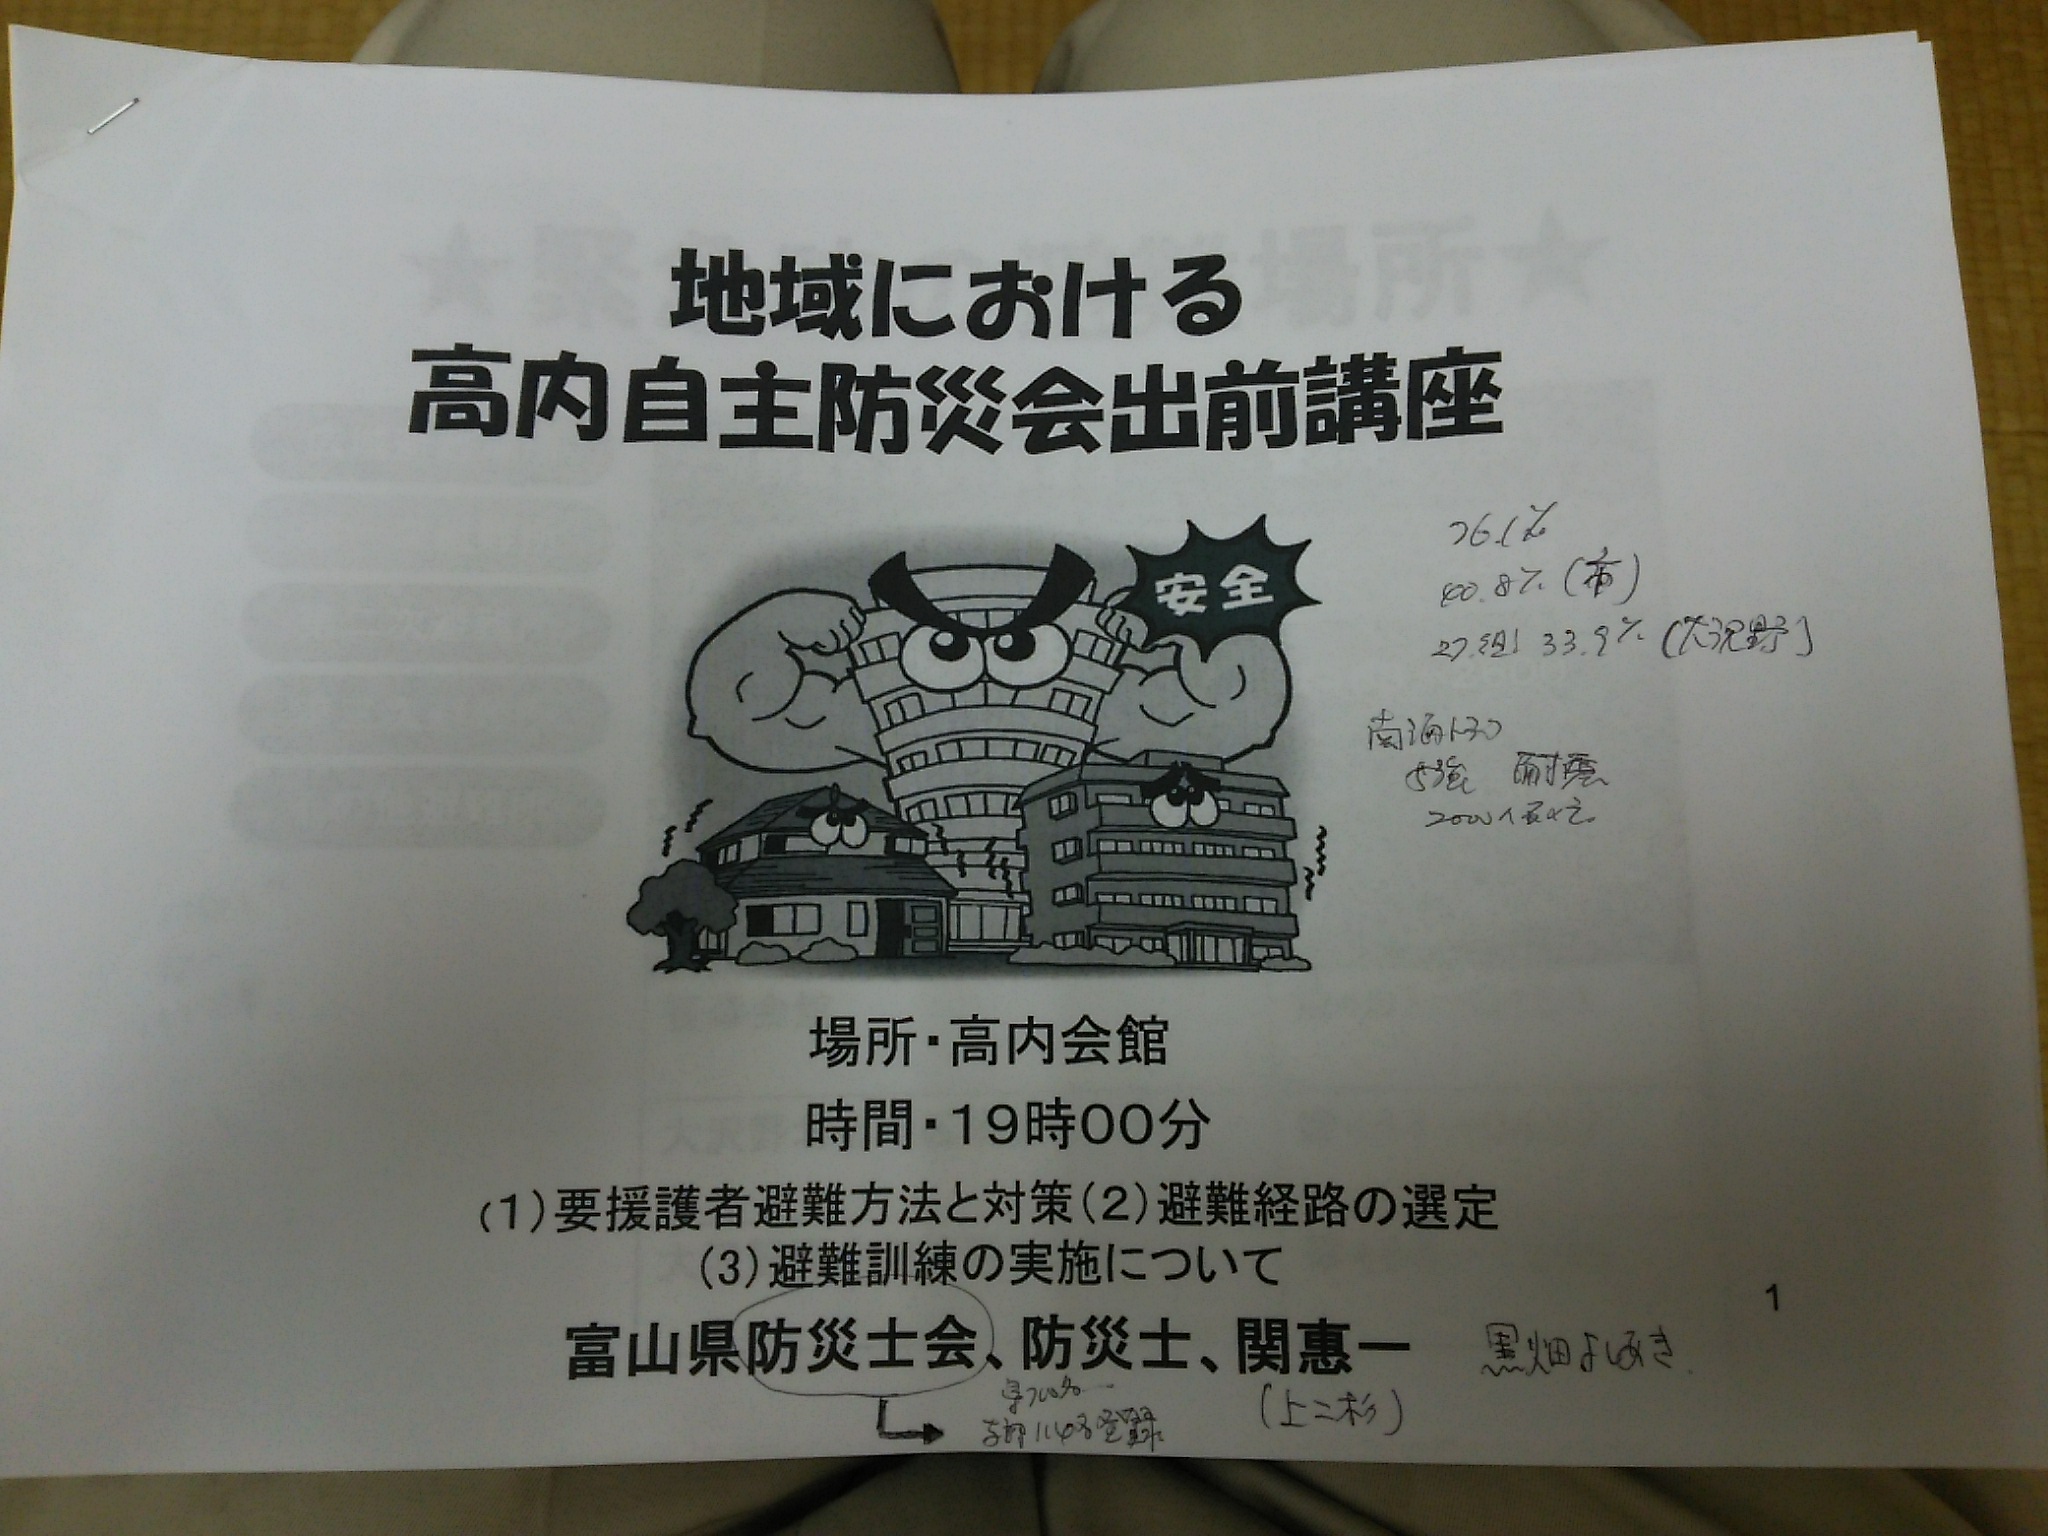 地域における
高内自主防災会出前講座
安全
26.1%
40.8% (市)
27組 33.9% (大沢野)
南海トラフ
5強 耐震
場所・高内会館
時間・19時00分
(1)要援護者避難方法と対策(2)避難経路の選定
(3)避難訓練の実施について
1
富山県防災士会、防災士、関惠一
(上二杉)